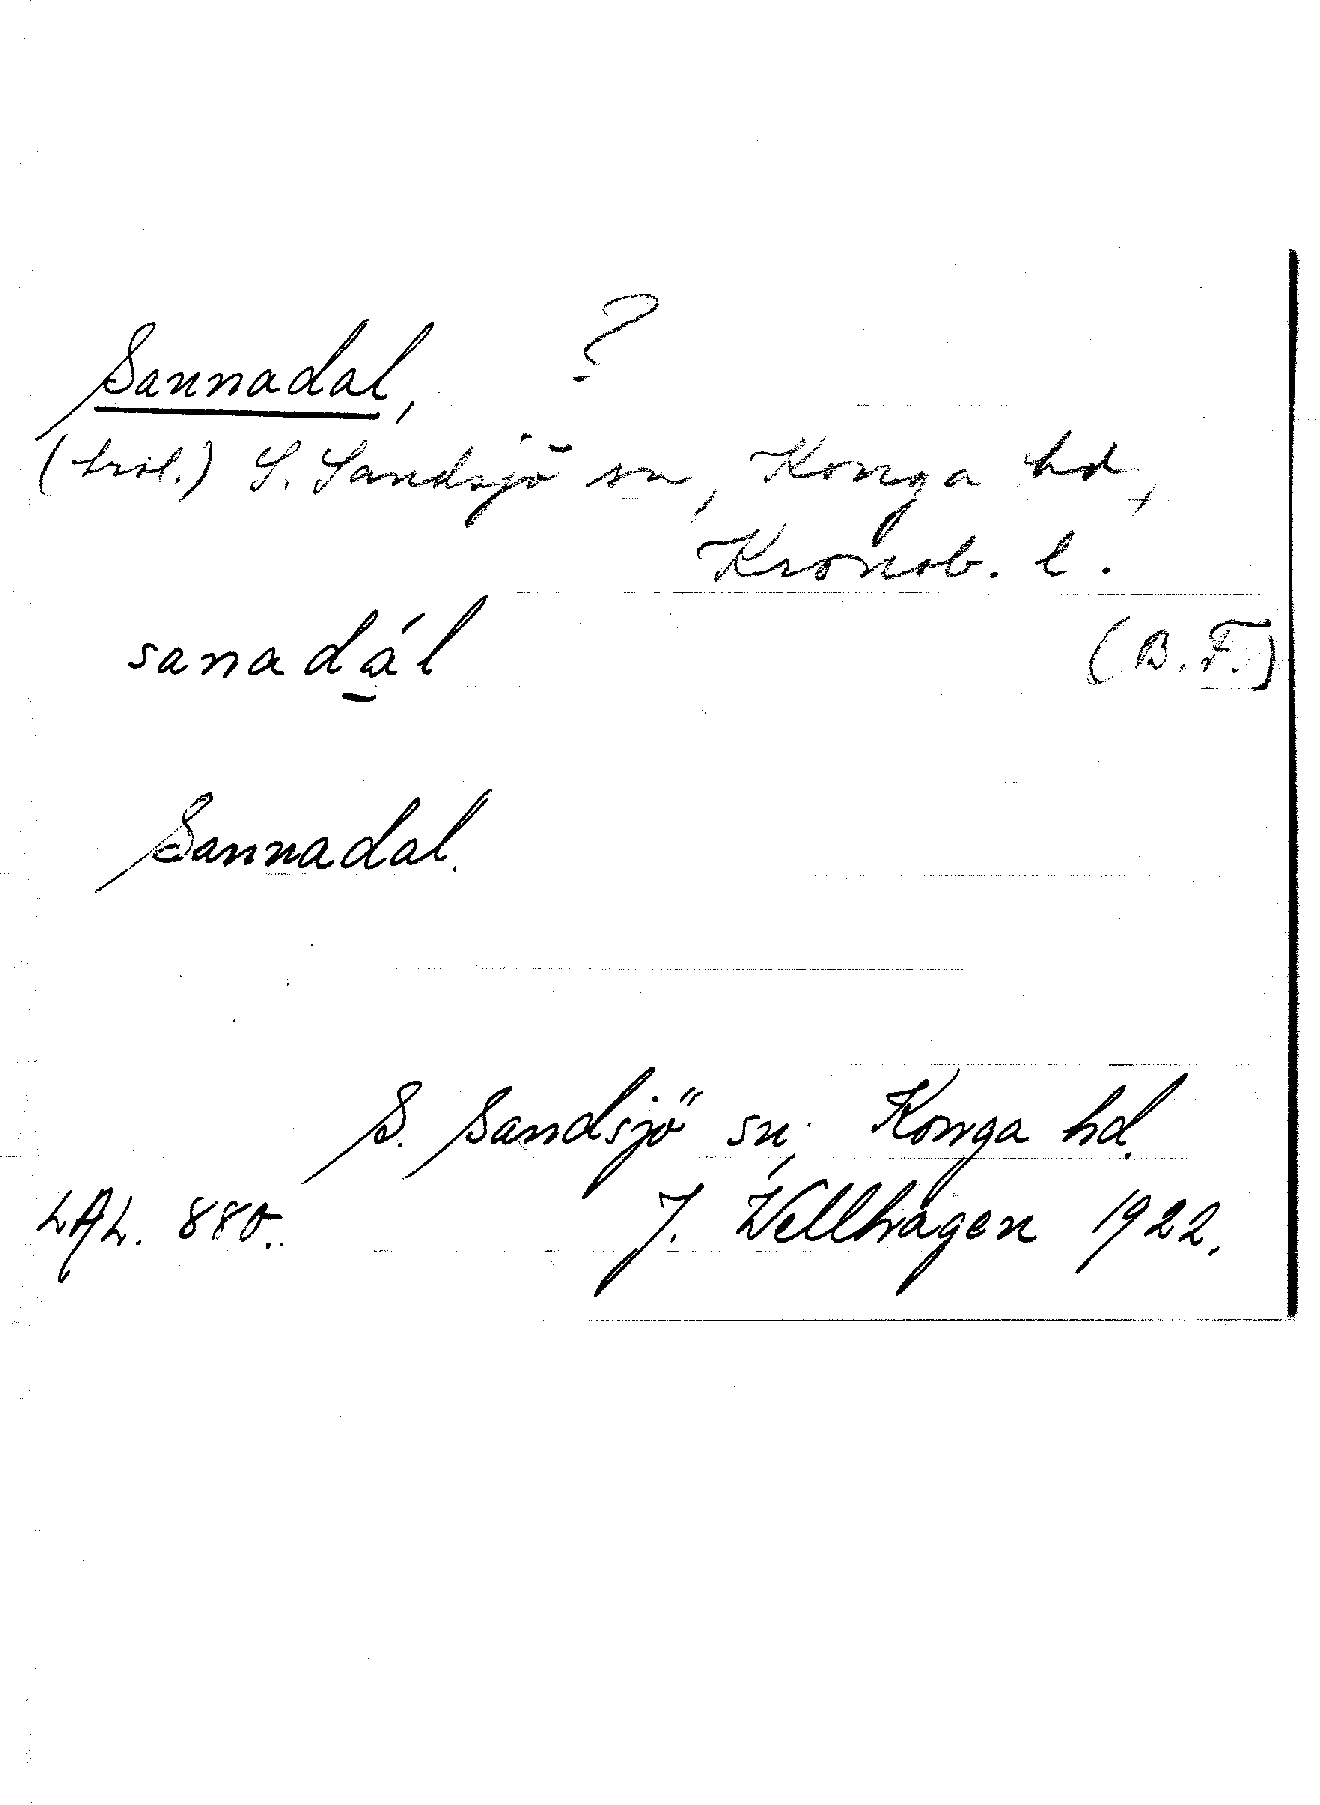 Sannadal, ?
(trol.) S. Sandsjö sn, Konga hd,
Kronob. l.
sanadál (B. F.)
Sannadal.
S. Sandsjö sn, Konga hd.
LAL. 880. J. Wellhagen 1922.